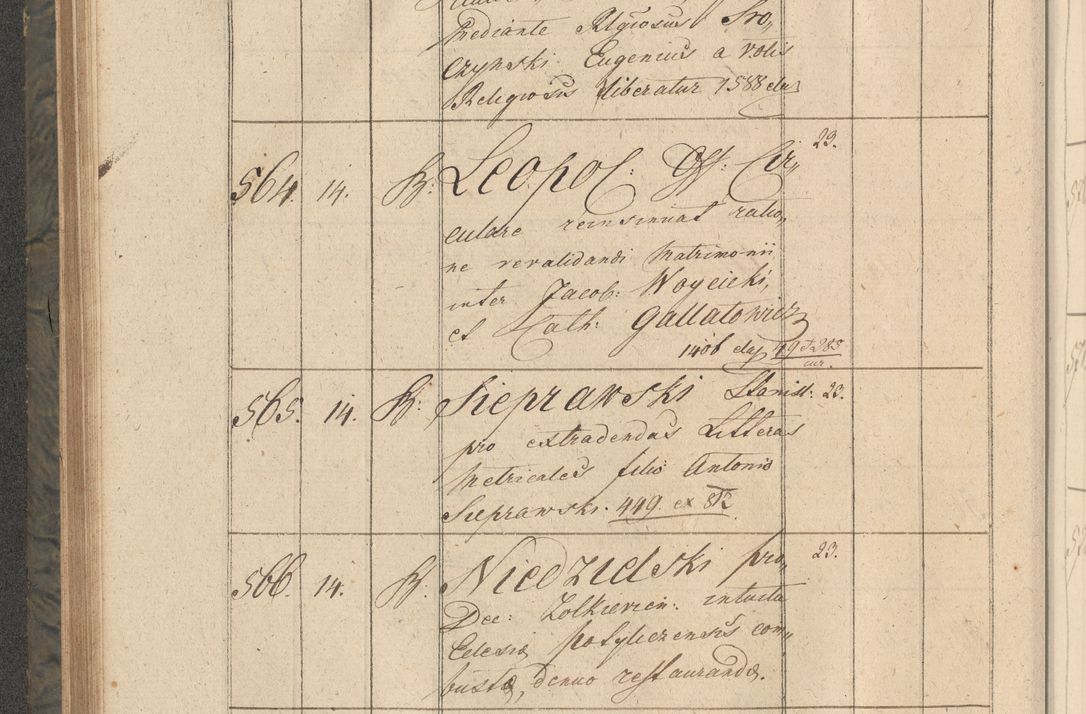 mediante Religiosus Sro„
czynski Eugenius a votis
Religiosus liberatur 1588 day
564. 14. B: Leopol: Off: Cir„ 23.
culare reinsinuat ratio„
ne revalidandi Matrimonii
inter Jacob: Woycicki,
et Cath: Gallatowicz
1406 day 49 et 285
cur.
565. 14. B: Sieprawski Stanisl: 23.
pro extradendas Litteras
Metricales filio Antonio
Sieprawski. 449. ex 812
566. 14. B: Niedzielski pro„ 23.
Dec: Zolkievien: intuitu
Eclesiæ potyliczensis com„
bustæ, denuo restaurandæ.